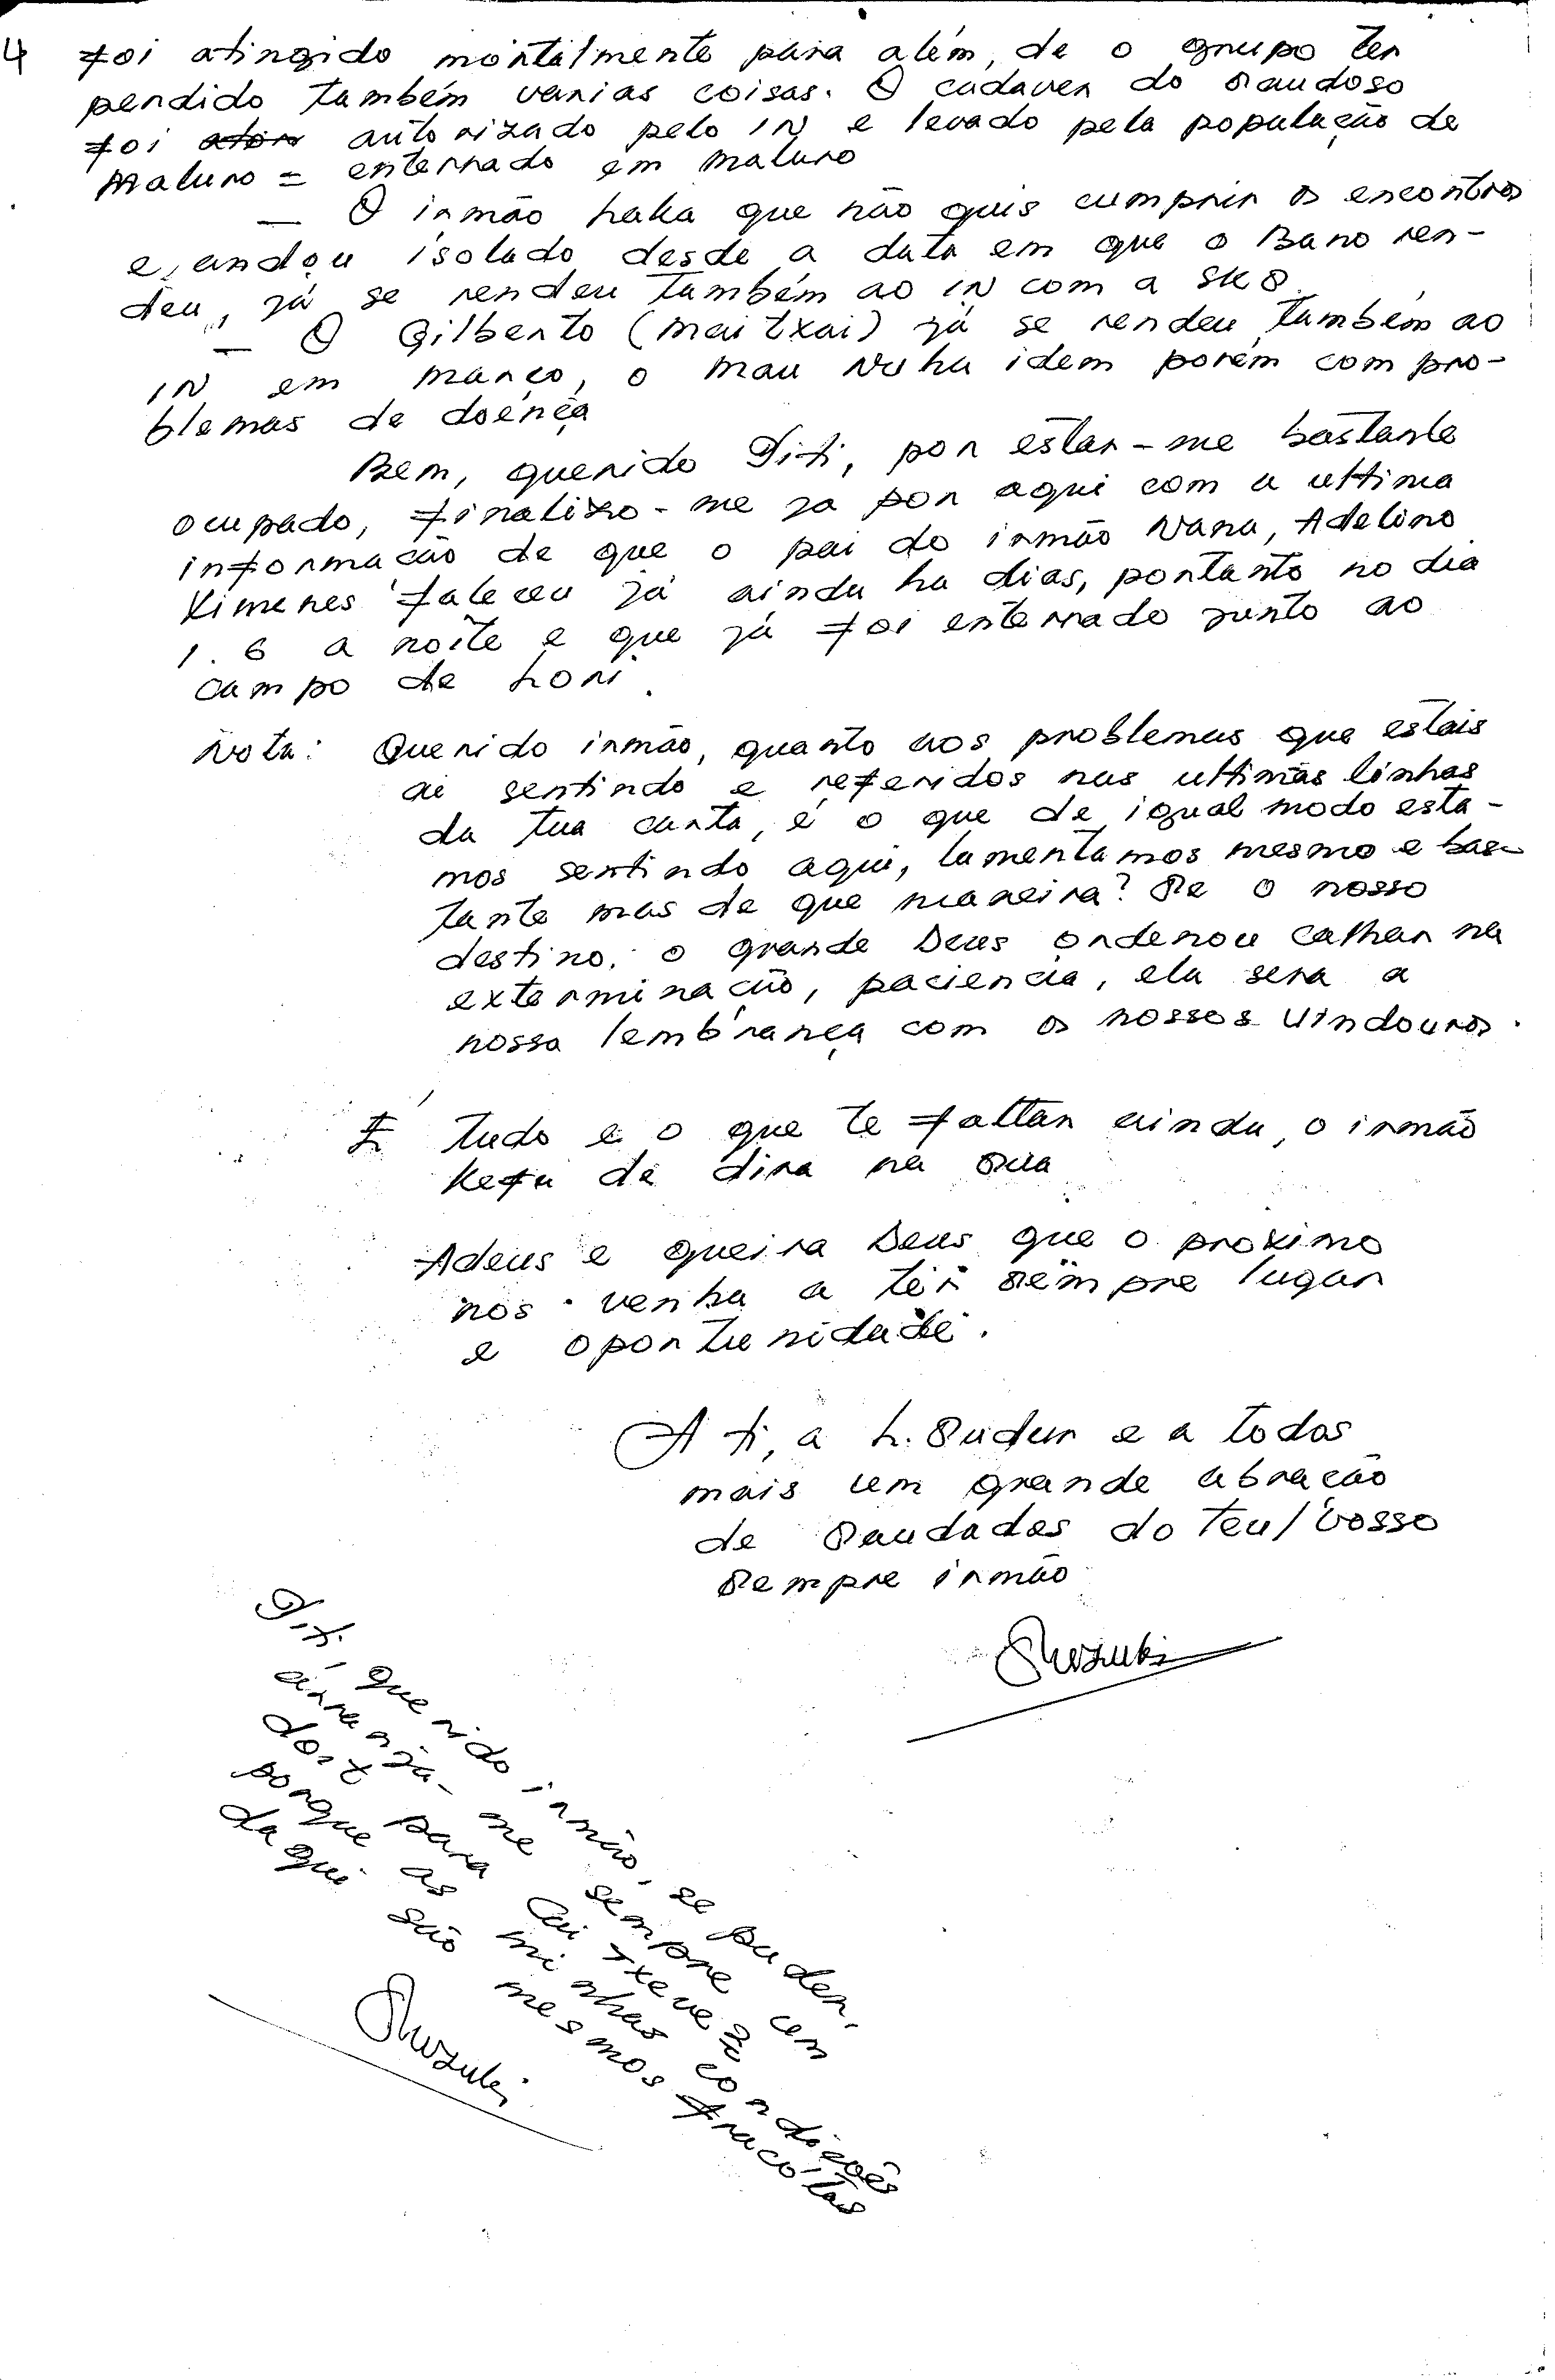 4 foi atingido mortalmente para além, de o grupo ter
perdido também varias coisas. O cadaver do saudoso
foi autorizado pelo IN e levado pela população de
Maluro = enterrado em Maluro
— O irmão haka que não quis cumprir os encontros
e, andou isolado desde a data em que o Bano ren-
deu, já se rendeu também ao IN com a SKS.
— O Gilberto (Mau txai) já se rendeu também ao
IN em março, o Mau Nuhu idem porém com pro-
blemas de doença
Bem, querido Titi, por estar-me bastante
ocupado, finalizo-me ja por aqui com a ultima
informação de que o pai do irmão Nana, Adelino
Ximenes faleceu já ainda ha dias, portanto no dia
1.6 a noite e que já foi enterrado junto ao
campo de Lori.
Nota: Querido irmão, quanto aos problemas que estais
ai sentindo e referidos nas ultimas linhas
da tua carta, é o que de igual modo esta-
mos sentindo aqui, lamentamos mesmo e bas-
tante mas de que maneira? Se o nosso
destino. o grande Deus ordenou calhar na
exterminação, paciencia, ela sera a
nossa lembrança com os nossos vindouros.
É tudo e o que te faltar ainda, o irmão
Kefu de dira na sua
Adeus e queira Deus que o proximo
nos venha a ter sempre lugar
e oportunidade.
A ti, a L. Sudur e a todos
mais um grande abração
de Saudades do teu/vosso
sempre irmão
Shozuki
Titi, querido irmão, se puder,
arranja-me sempre um
dos x para Cai Txeveze
porque as minhas condições
daqui são mesmos fracótas
Shozuki